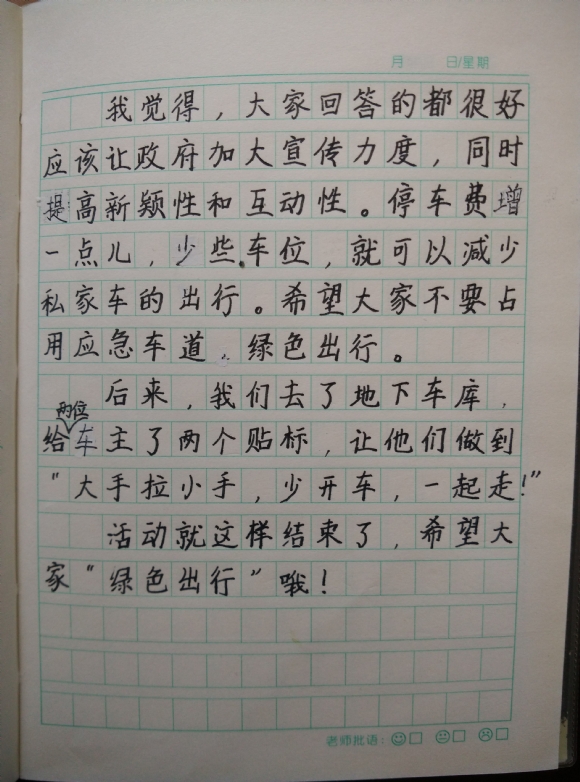 月 日/星期
我觉得，大家回答的都很好
应该让政府加大宣传力度，同时
提高新颖性和互动性。停车费增
一点儿，少些车位，就可以减少
私家车的出行。希望大家不要占
用应急车道。绿色出行。
后来，我们去了地下车库，
两位
给车主了两个贴标，让他们做到
“大手拉小手，少开车，一起走！”
活动就这样结束了，希望大
家“绿色出行”哦！
老师批语：